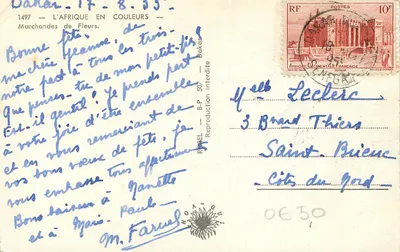 Dakar 17-8-55
1497 - L'AFRIQUE EN COULEURS -
Marchandes de Fleurs.
Bonne fête,
ma chère Jeanne, de
notre part à tous les trois.
Que pensez-tu de mon petit-fils?
Est-il gentil? Je prends part
à votre joie d'être ensemble
et en vous remerciant de
vos bons vœux de fête, je
vous embrasse tous affectueusement
Bons baisers à Nanette
et à Marie-Paule
M. Farvel
Reproduction interdite
RF
POSTES
10F
Melle Leclerc
3 Bvard Thiers
Saint Brieuc
Côtes du Nord
OE50